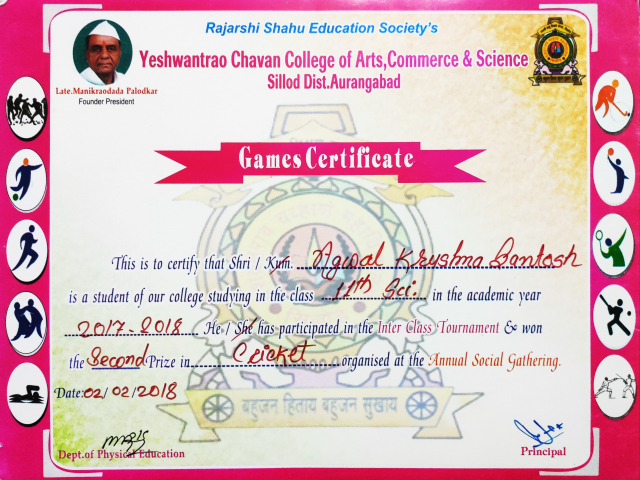 Rajarshi Shahu Education Society's
Yeshwantrao Chavan College of Arts,Commerce & Science
Sillod Dist.Aurangabad
Late.Manikraodada Palodkar
Founder President
Games Certificate
This is to certify that Shri / Kum. Agwal Krushna Santosh
is a student of our college studying in the class 11th Sci. in the academic year
2017-2018 He / She has participated in the Inter Class Tournament & won
the Second Prize in Cricket organised at the Annual Social Gathering.
Date:02/02/2018
बहुजन हिताय बहुजन सुखाय
Dept.of Physical Education
Principal